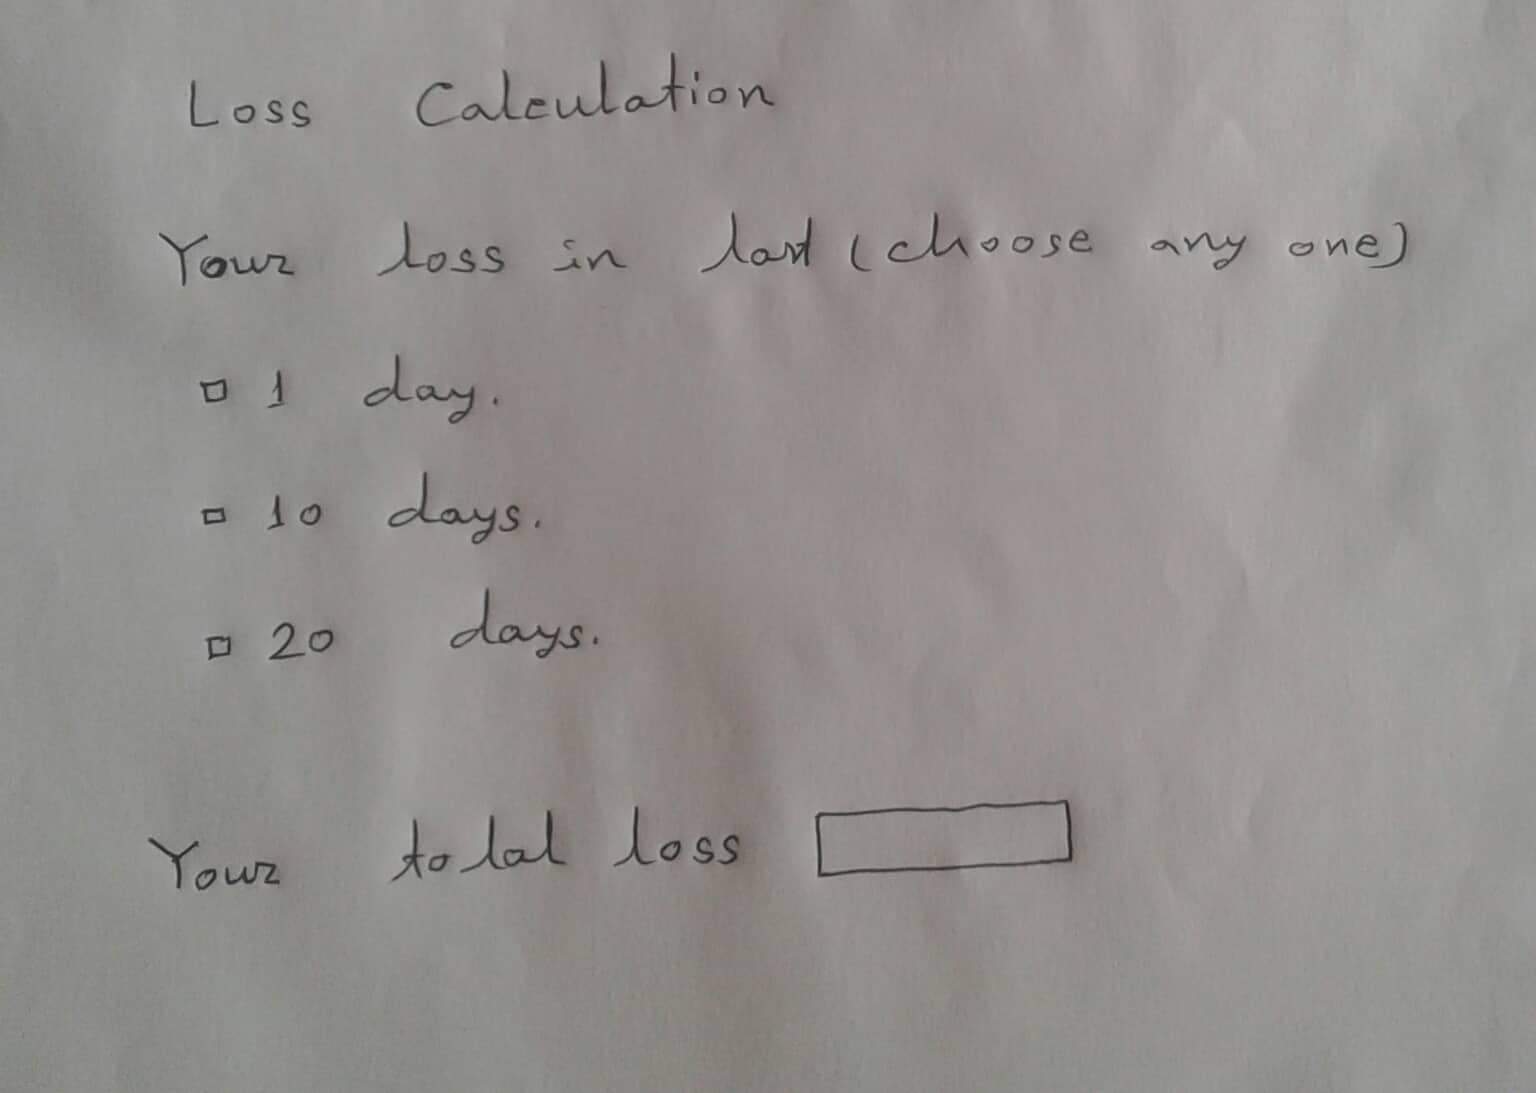 Loss Calculation
Your loss in last (choose any one)
1 day.
10 days.
20 days.
Your total loss